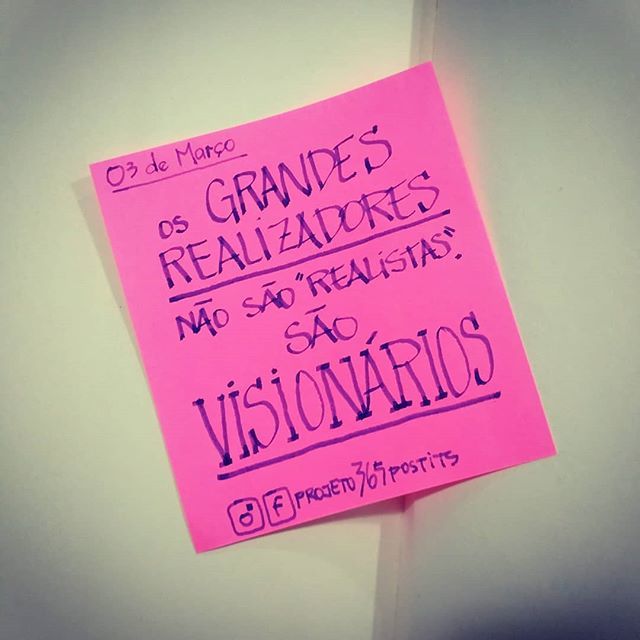 03 de Março
OS GRANDES
REALIZADORES
NÃO SÃO "REALISTAS".
SÃO
VISIONÁRIOS
PROJETO365POSTITS